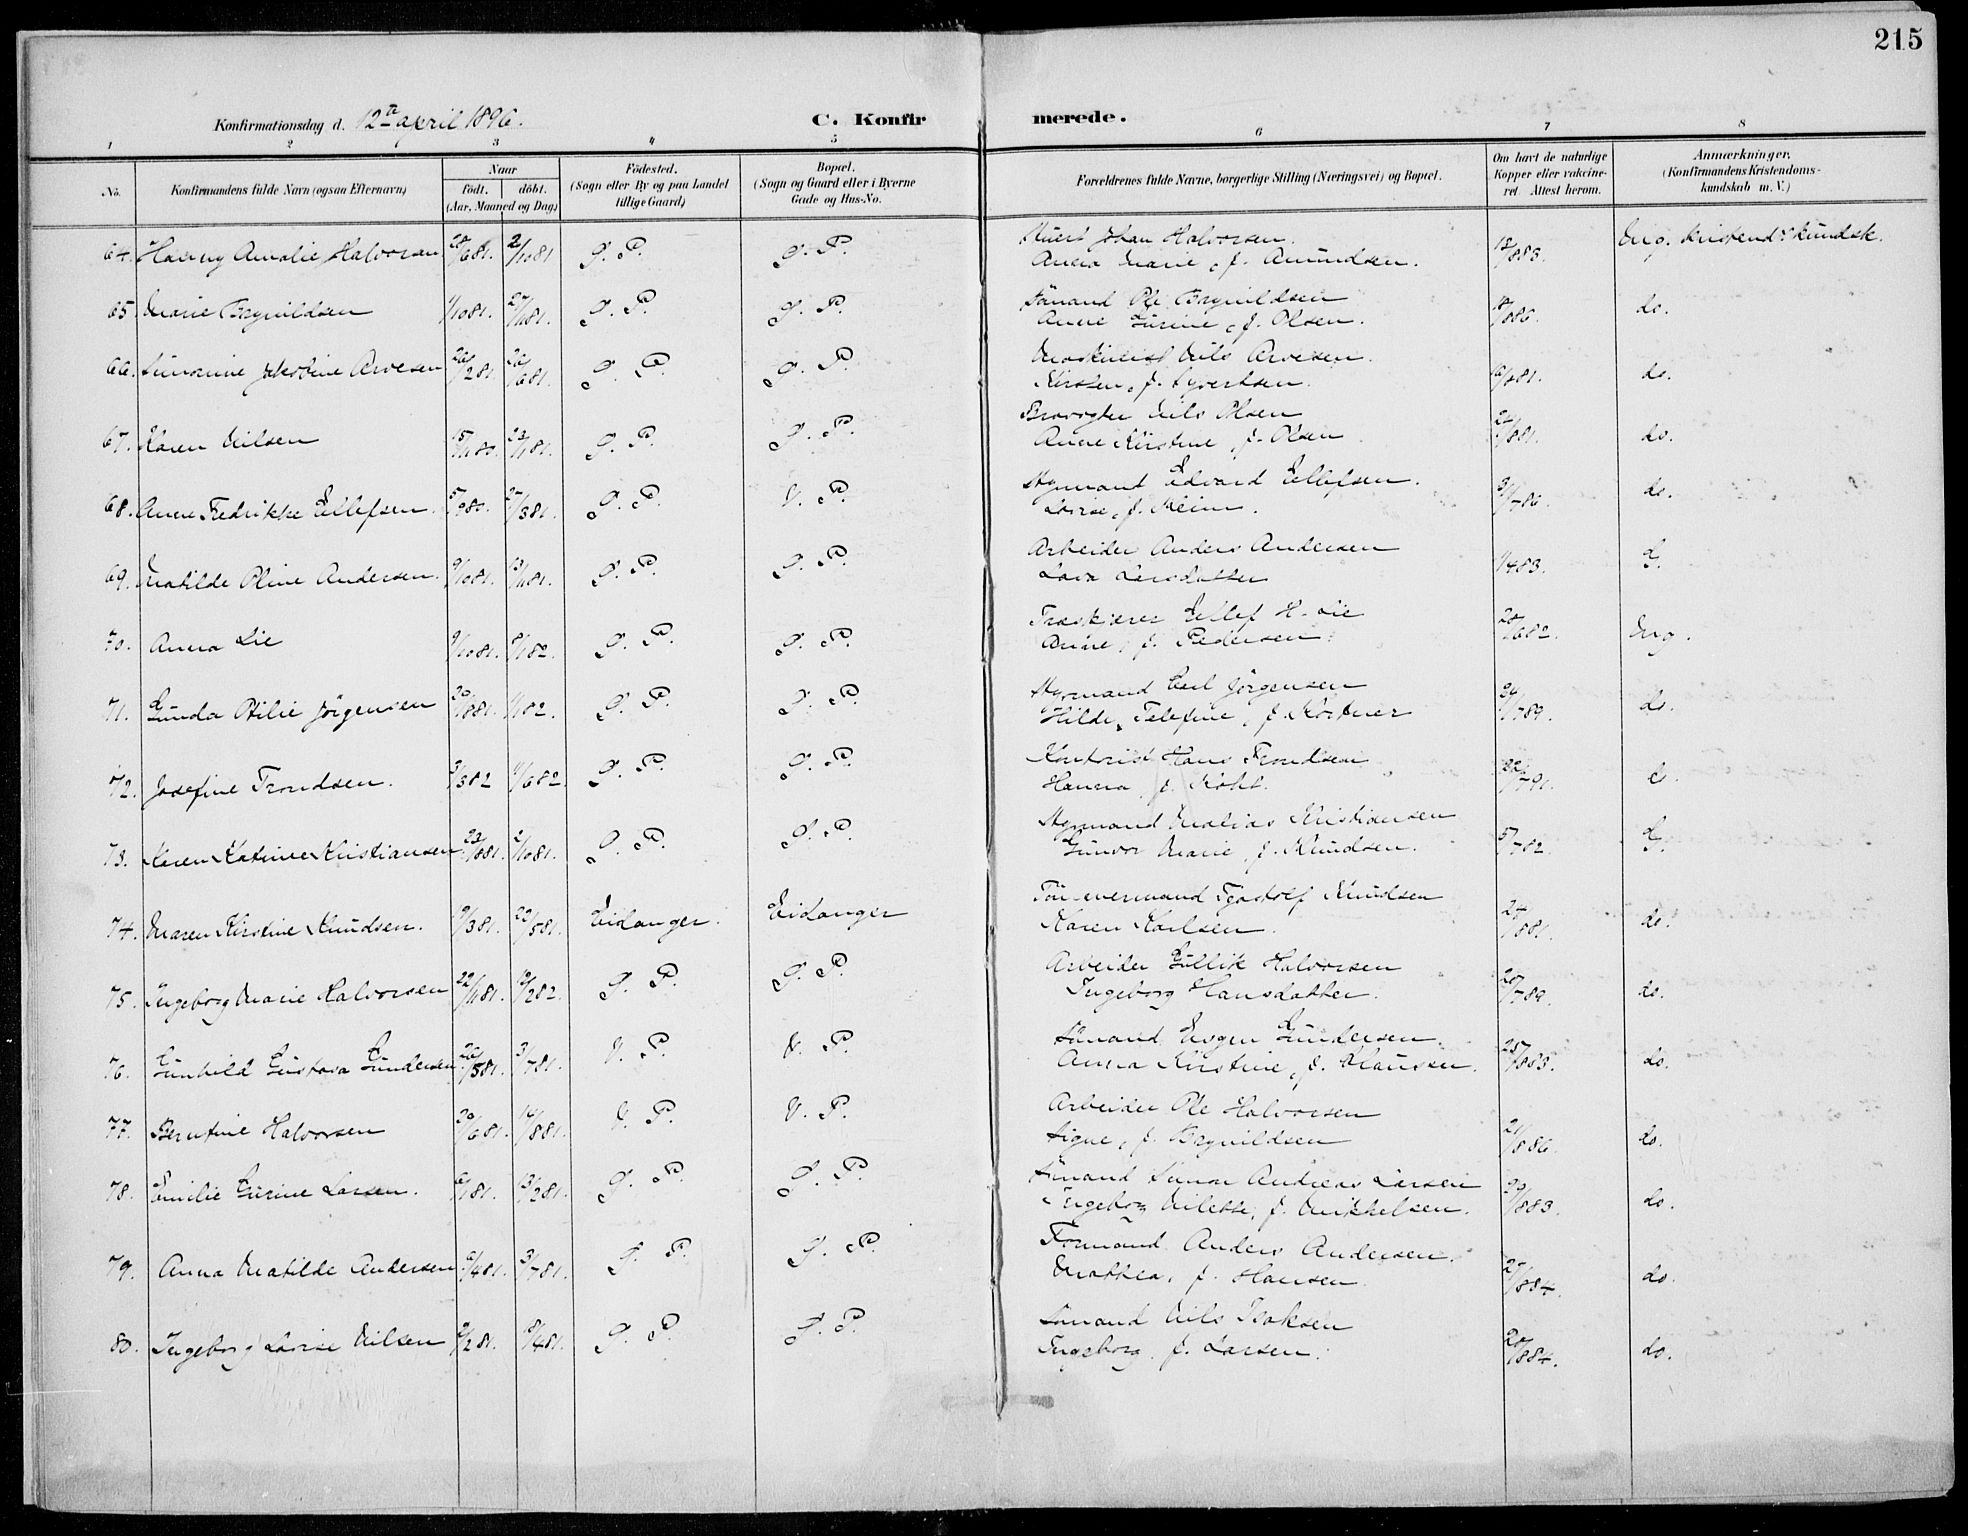 215
Konfirmationsdag d. 12te april 1896.
C. Konfirmerede.
1 2 3 4 5 6 7 8
No. Konfirmandens fulde Navn (ogsaa Efternavn) Naar födt. döbt. (Aar, Maaned og Dag) Födested. (Sogn eller By og paa Landet tillige Gaard) Bopæl. (Sogn og Gaard eller i Byerne Gade og Hus-No. Forældrenes fulde Navne, borgerlige Stilling (Næringsvei) og Bopæl. Om havt de naturlige Kopper eller vaccineret. Attest herom. Anmærkninger. (Konfirmandens Kristendomskundskab m. V.)
64. Hanny Amalie Halvorsen 28/681. 2/1081 Ø. P. Ø. P. Johan Halvorsen.
Anna Marie, f. Amundsen. 18/883. Mg. Kristends kundsk.
65 Marie Brynildsen 1/1081. 27/1181. Ø. P. Ø. P. Sömand Ole Brynildsen
Anne Gurine, f. Olsen. 18/886. do.
66. Simonine Jakobine Arvesen 26/281. 26/681. Ø. P. Ø. P. Maskinist Nils Arvesen.
Kirsten, f. Syvertsen. do.
67. Karen Nilsen 15/1180. 23/181. Ø. P. Ø. P. Brovogter Nils Olsen
Anne Kirstine, f. Olsen 24/881. do.
68. Anne Fredrikke Ellefsen. 5/980. 27/381. Ø. P. V. P. Styrmand Edvard Ellefsen.
Lovise, f. Klein. 9/786. do.
69. Matilde Oline Andersen. 9/1081. 13/1181. Ø. P. Ø. P. Arbeider Anders Andersen
Lova Larsdatter 1/483. G.
70. Anna Lie 9/1081. 8/182. Ø. P. Ø. P. Træskjærer Ellef H. Lie
Anne, f. Pedersen. 28/682. Mg.
71. Gunda Otilie Jörgensen 20/881. 1/182. Ø. P. Ø. P. Styrmand Carl Jörgensen
Hilda Telefine, f. Kortner 24/789. do.
72. Josefine Trondsen. 3/382 4/682. Ø. P. Ø. P. Kontorist Hans Trondsen
Hanna, f. Holst. 22/791. do
73. Karen Katrine Kristiansen 23/881. 2/1081. Ø. P. Ø. P. Styrmand Matias Kristiansen
Gunvor Marie, f. Knudsen. 5/782. G.
74. Maren Kirstine Knudsen. 9/381. 22/581. Eidanger. Eidanger Tjostolf Knudsen
Karen Karlsen. 24/881. do.
75. Ingeborg Marie Halvorsen 22/1181. 12/282. Ø. P. Ø. P. Arbeider Gullik Halvorsen
Ingeborg Hansdatter. 28/789. do.
76. Gunhild Gustava Gundersen 26/581. 3/781. V. P. V. P. Sömand Gundersen
Anna Kirstine, f. Klausen. 25/883. do.
77. Berntine Halvorsen 20/681. 14/881. V. P. V. P. Arbeider Ole Halvorsen
Signe, f. Brynildsen 21/886. do.
78. Emilie Gurine Larsen. 6/181. 13/281. Ø. P. Ø. P. Sömand Simon Andreas Larsen
Ingeborg Nilette, f. Mikkelsen. 29/883. do.
79. Anna Matilde Andersen 6/481. 3/781. Ø. P. Ø. P. Formand Anders Andersen.
Mathea, f. Hansen. do.
80. Ingeborg Lovise Nilsen 2/281. 8/481. Ø. P. Ø. P. Sömand Nils Isaksen
Ingeborg, f. Larsen. 28/884. do.